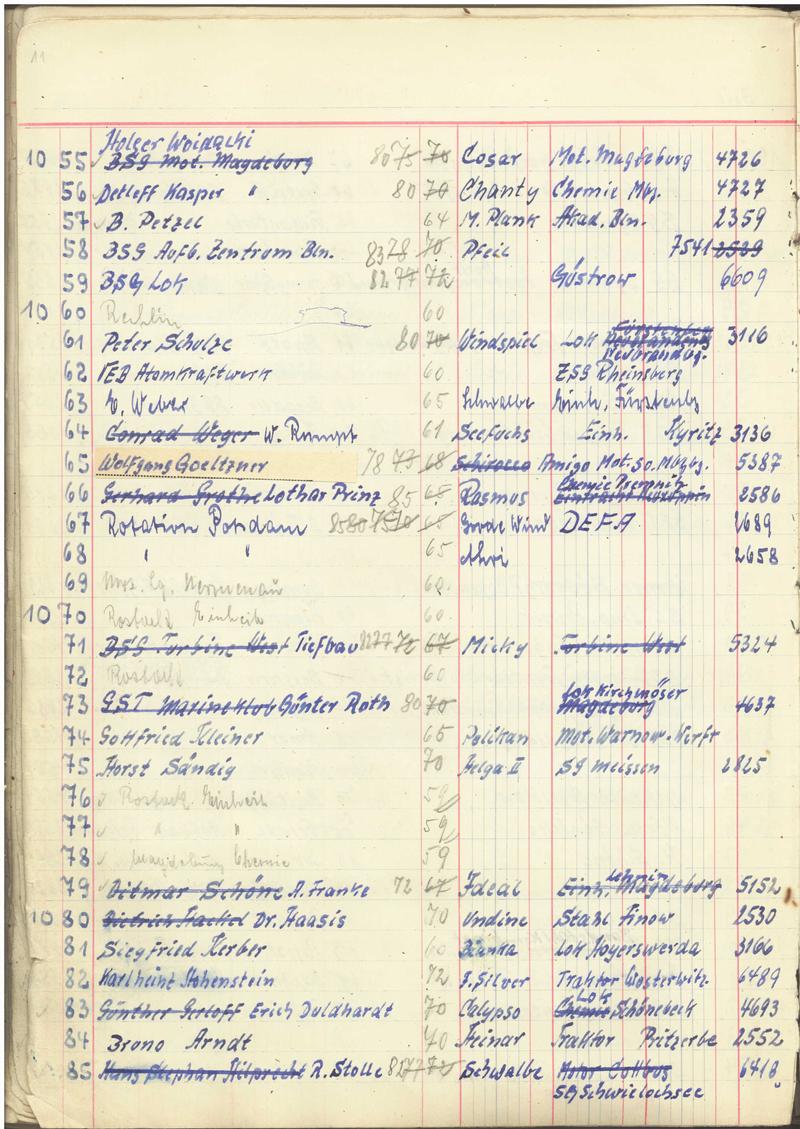 11
Holger Woidacki
10 55 BSG Mot. Magdeburg 80 75 70 Cosar Mot. Magdeburg 4726
56 Detleff Kasper " 80 70 Chanty Chemie Mbg. 4727
57 B. Petzel 64 M. Plank Akad. Bln. 2359
58 BSG Aufb. Zentrum Bln. 83 78 70 Pfeil 7541 2539
59 BSG Lok 82 77 72 Güstrow 6609
10 60 Rechlin 60
61 Peter Schulze 80 70 Windspiel Lok 3116
Neubrandbg.
62 VEB Atomkraftwerk 60 ZSG Rheinsberg
63 Weber 65 Schwalbe Einh. Fürstenbg
64 Conrad Weger W. Rumpf 61 Seefuchs Einh. Kyritz 3136
65 Wolfgang Goeltzner 78 73 68 Schirocco Amigo Mot. So. Mbg. 5387
66 Gerhard Grothe Lothar Prinz 85 65 Rasmus Eintracht Neuruppin 2586
67 Rotation Potsdam 85 80 75 70 65 Gorde Wind DEFA 2689
68 " " 65 2658
69 60
10 70 Rostock Einheit 60
71 BSG Turbine West Tiefbau 82 77 72 67 Micky Turbine West 5324
72 Rostock 60
Lok Kirchmöser
73 GST Marineklub Günter Roth 80 70 Magdeburg 4637
74 Gottfried Kleiner 65 Pelikan Mot. Warnow-Werft
75 Horst Sändig 70 Helga II SG Meissen 2825
76 Rostock Einheit 59
77 " " 59
78 Magdeburg Chemie 59
79 Ditmar Schöne A. Franke 72 67 Ideal Einh. Magdeburg 5152
10 80 Dietrich Hackel Dr. Haasis 70 Undine Stahl Finow 2530
81 Siegfried Kerber 60 Bianka Lok Hoyerswerda 3166
82 Karlheinz Hohenstein 72 J. Silver Traktor Wusterwitz. 6489
Lok
83 Günther Gerloff Erich Duldhardt 70 Calypso Chemie Schönebeck 4693
84 Bruno Arndt 70 Heinar Traktor Pritzerbe 2552
85 Hans Stephan Hilprecht R. Stolle 82 77 72 Schwalbe Motor Cottbus 6418
SG Schwielochsee